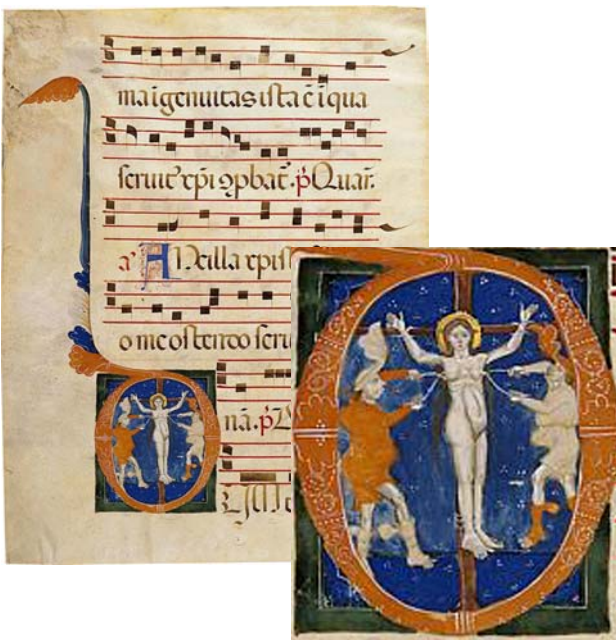 maīgenuitas ista ē ī qua
seruit᾽ xp̄i ꝯpbat᾽. p̄ Quar̄.
a᾽ ANcilla xp̄i
o me ostendo serui
nā. p̄